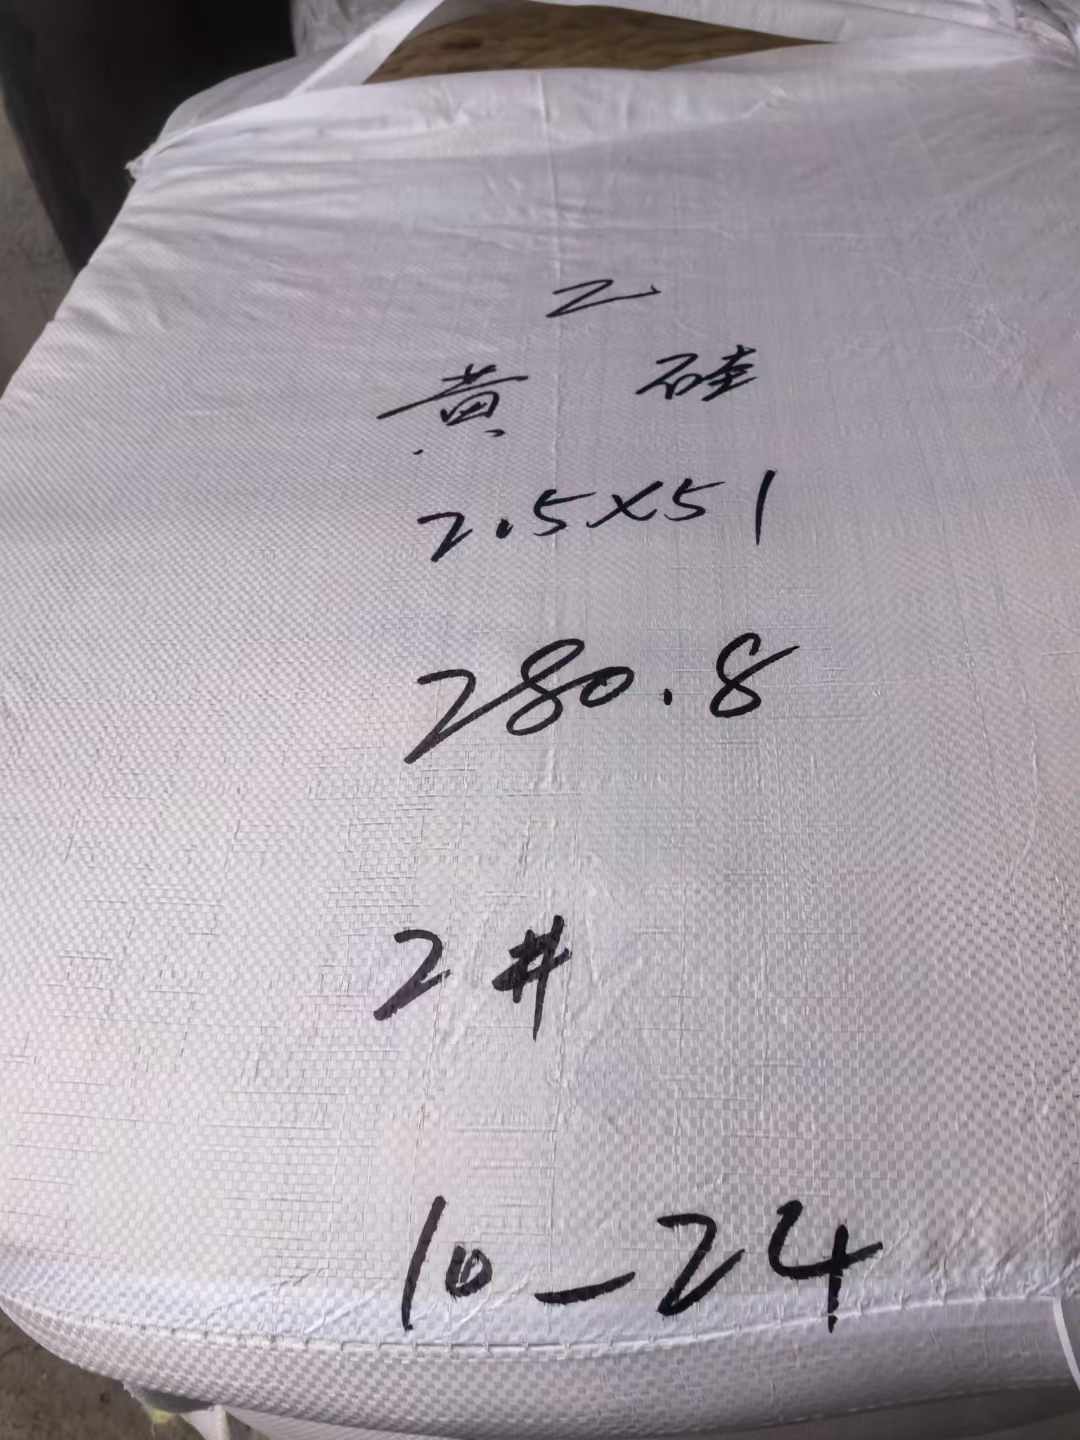 2
黄 硅
2.5×51
280.8
2#
10-24